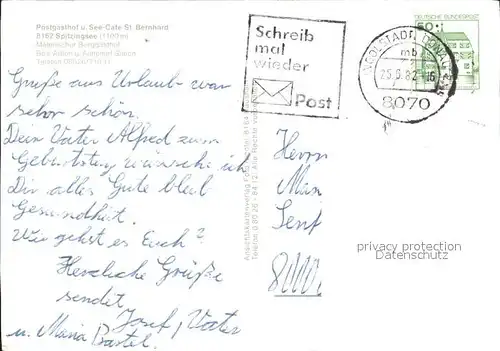 Postgasthof u. See-Cafe St. Bernhard
8167 Spitzingsee (1100 m)
Malerischer Berggasthof
Bes. Alfons u. Annemarie
Telefon 08026/7
Grüße aus Urlaub war
sehr schön.
Dein Vater Alfred zum
Geburtstag wünsche ich
Dir alles Gute bleib
Gesundheit.
Wie gehst es Euch?
Herzliche Grüße
sendet
Josef, Vater
u. Maria Bartel.
Schreib
mal
wieder
Post
INGOLSTADT, DONAU
mb
25.5.82-16
8070
DEUTSCHE BUNDESPOST
50
Ansichtskartenverlag
Herrn
Man
Senf
8000
privacy protection
Datenschutz